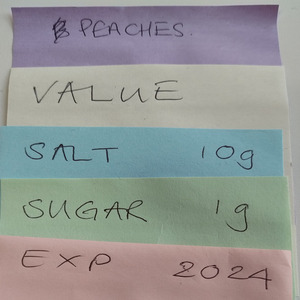 PEACHES.
VALUE
SALT 10g
SUGAR 1g
EXP 2024